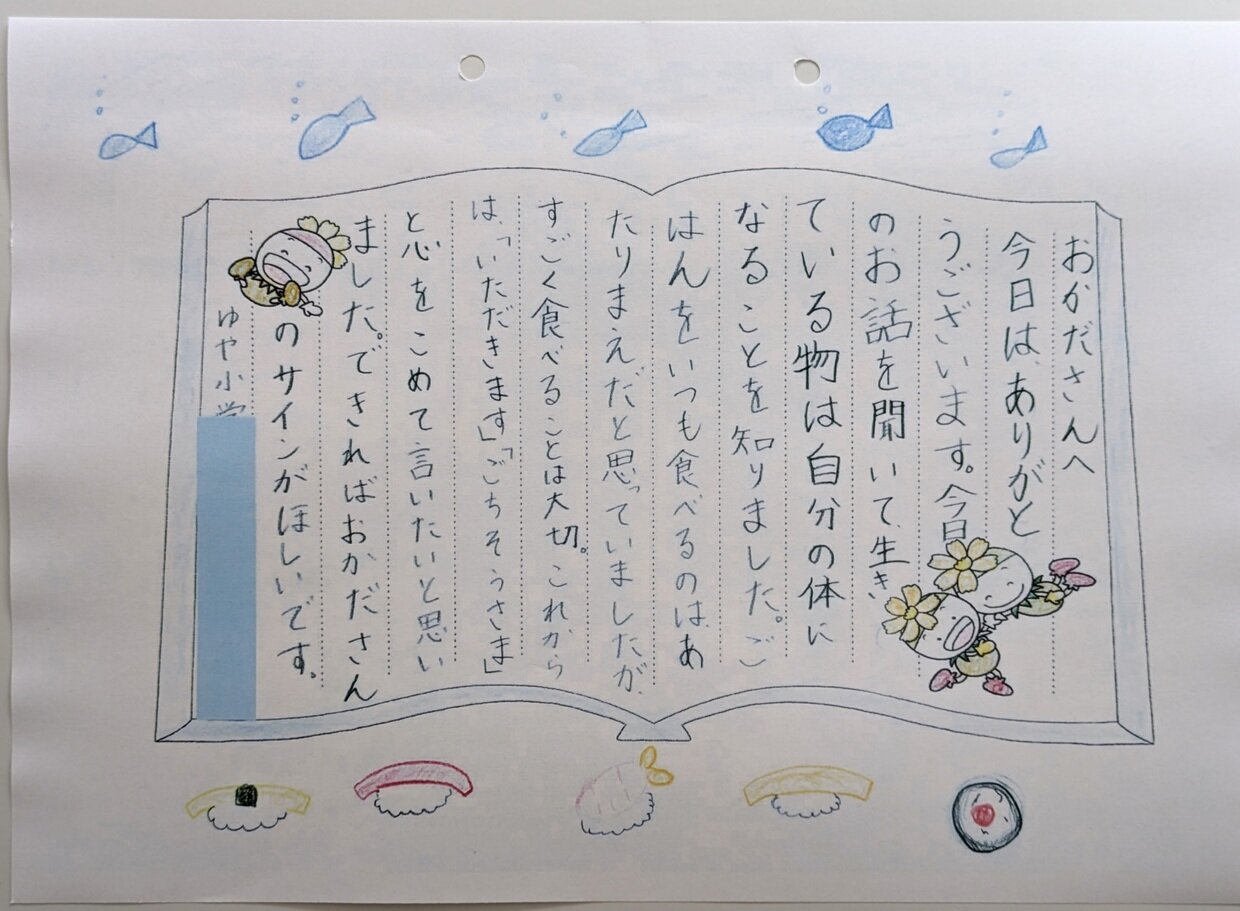 おかださんへ
今日は、ありがと
うございます。今日
のお話を聞いて、生き
ている物は自分の体に
なることを知りました。ご
はんをいつも食べるのはあ
たりまえだと思っていましたが、
すごく食べることは大切。これから
は、「いただきます」「ごちそうさま」
と心をこめて言いたいと思い
ました。できればおかださん
のサインがほしいです。
ゆや小学